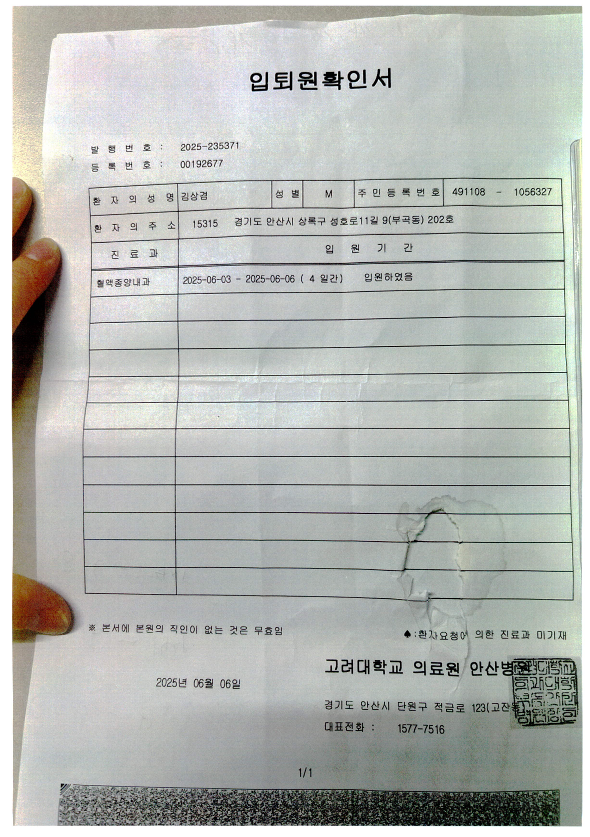 입퇴원확인서
발 행 번 호 : 2025-235371
등 록 번 호 : 00192677
환 자 의 성 명 김상겸 성 별 M 주 민 등 록 번 호 491108 - 1056327
환 자 의 주 소 15315 경기도 안산시 상록구 성호로11길 9(부곡동) 202호
진 료 과 입 원 기 간
혈액종양내과 2025-06-03 - 2025-06-06 ( 4 일간) 입원하였음
※ 본서에 본원의 직인이 없는 것은 무효임 ♠:환자요청에 의한 진료과 미기재
고려대학교 의료원 안산병원
2025년 06월 06일
경기도 안산시 단원구 적금로 123(고잔동
대표전화 : 1577-7516
1/1